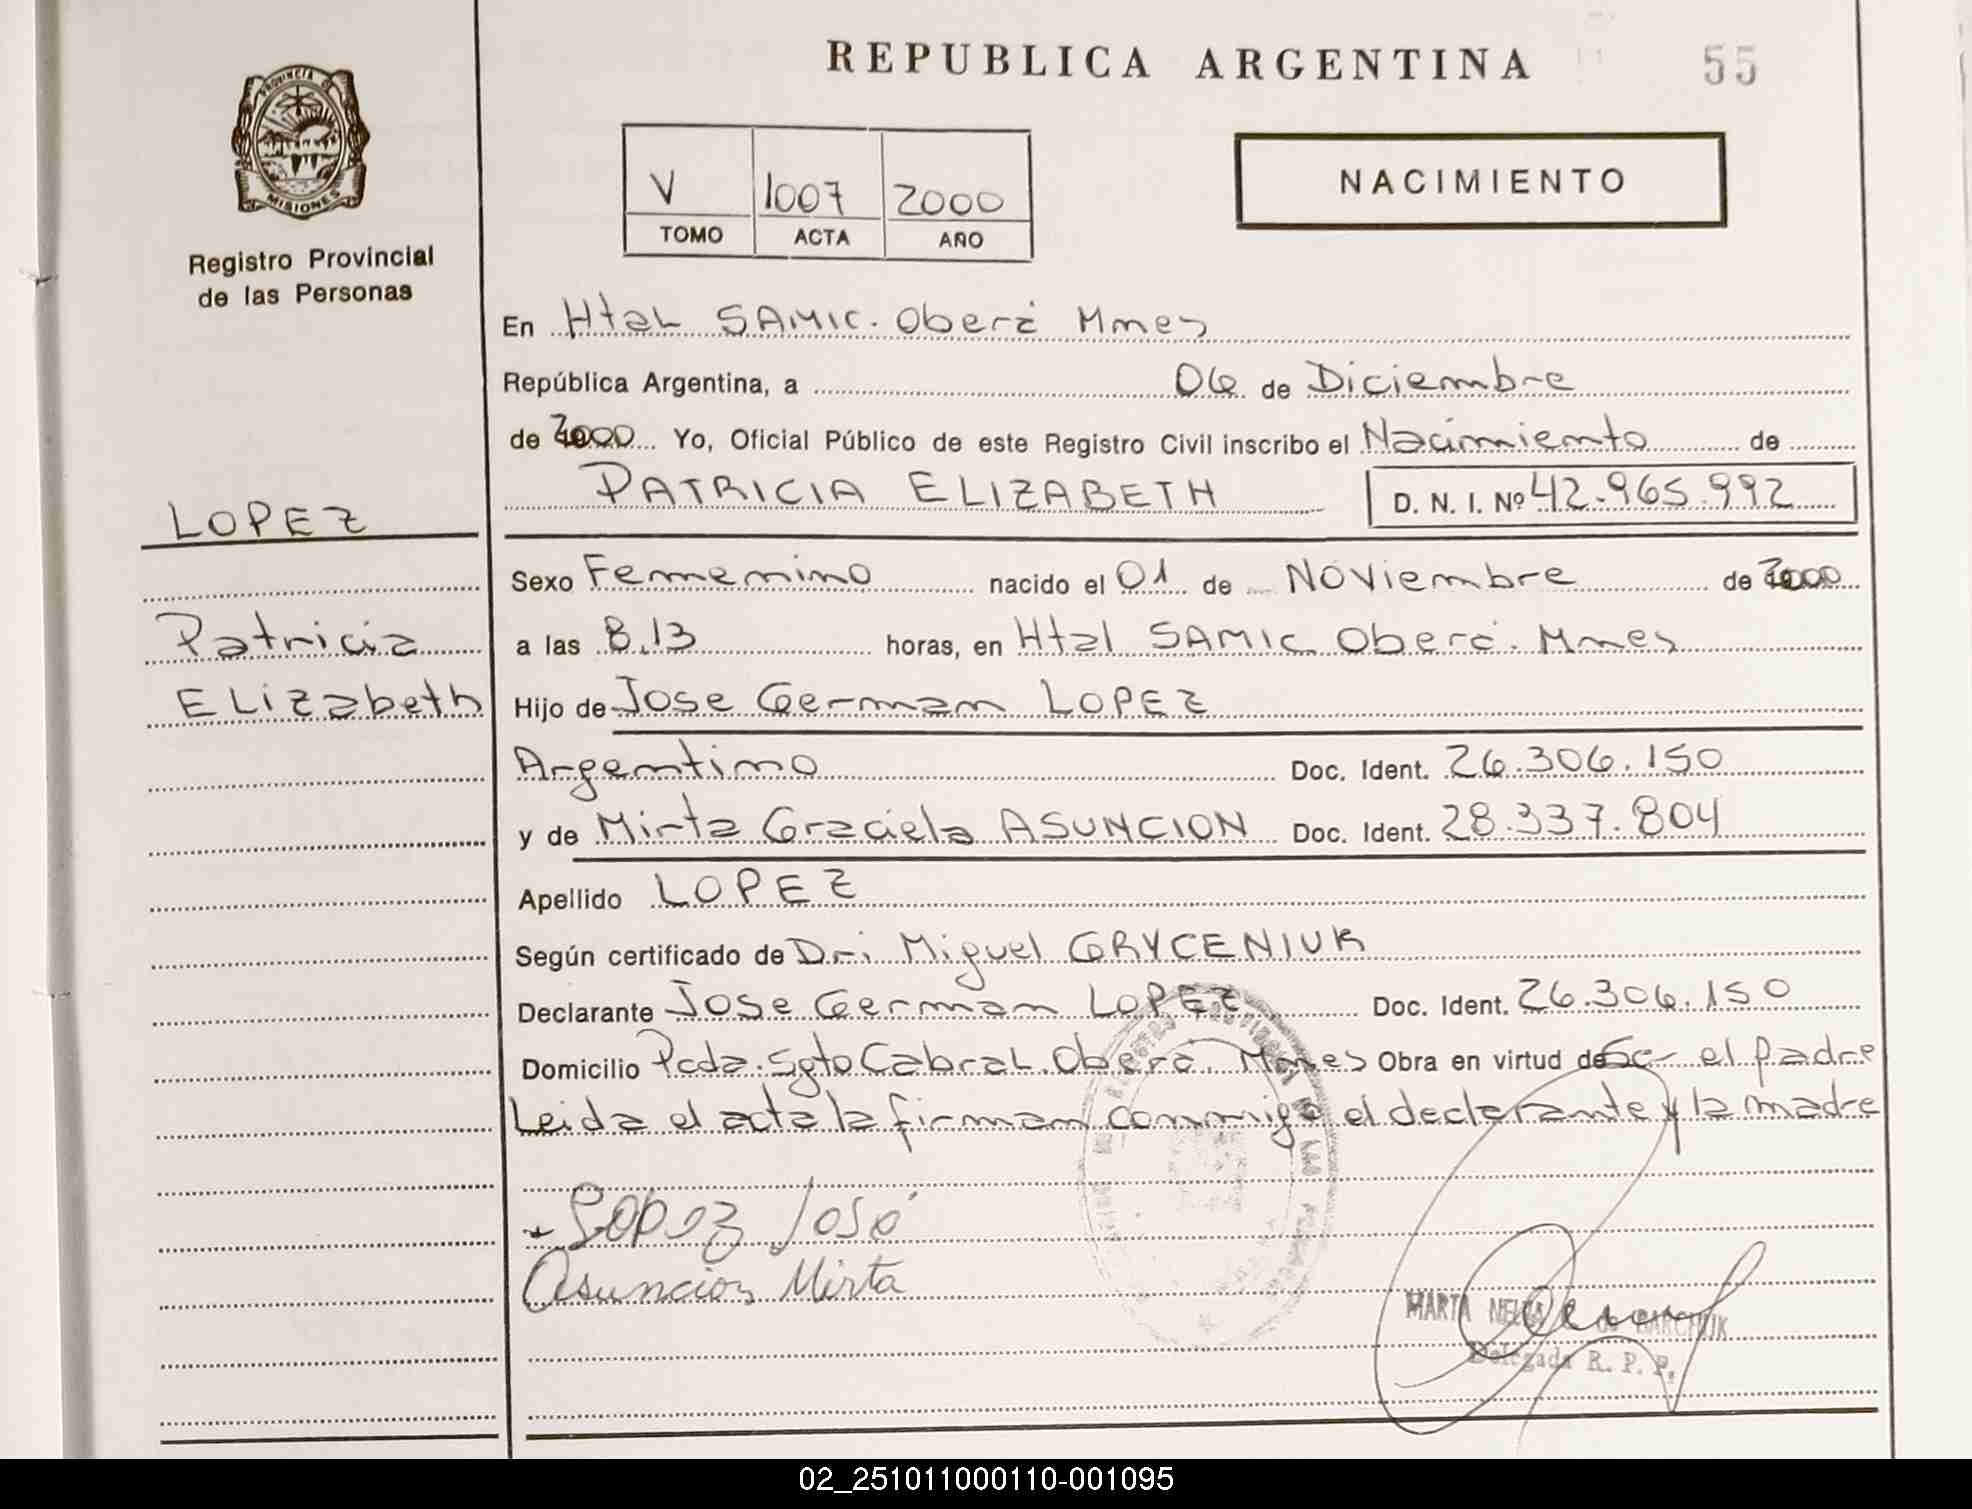 REPUBLICA ARGENTINA
55
PROVINCIA DE
MISIONES
Registro Provincial
de las Personas
V 1007 2000
TOMO ACTA AÑO
NACIMIENTO
En Htal SAMIC. Oberá Mnes
República Argentina, a 06 de Diciembre
de 2000 Yo, Oficial Público de este Registro Civil inscribo el Nacimiento de
PATRICIA ELIZABETH D. N. I. Nº 42.965.992
LOPEZ
Patricia
Elizabeth
Sexo Femenino nacido el 01 de Noviembre de 2000
a las 8.13 horas, en Htal SAMIC. Oberá. Mnes
Hijo de Jose German LOPEZ
Argentino Doc. Ident. 26.306.150
y de Mirta Graciela ASUNCION Doc. Ident. 28.337.804
Apellido LOPEZ
Según certificado de Dr. Miguel GRYCENIUK
Declarante Jose German LOPEZ Doc. Ident. 26.306.150
Domicilio Pcda. Sgto Cabral. Oberá. Mnes Obra en virtud de Ser el padre
Leida el acta la firman conmigo el declarante y la madre
López José
Asuncion Mirta
MARTA
Delegada R. P. P.
02_251011000110-001095